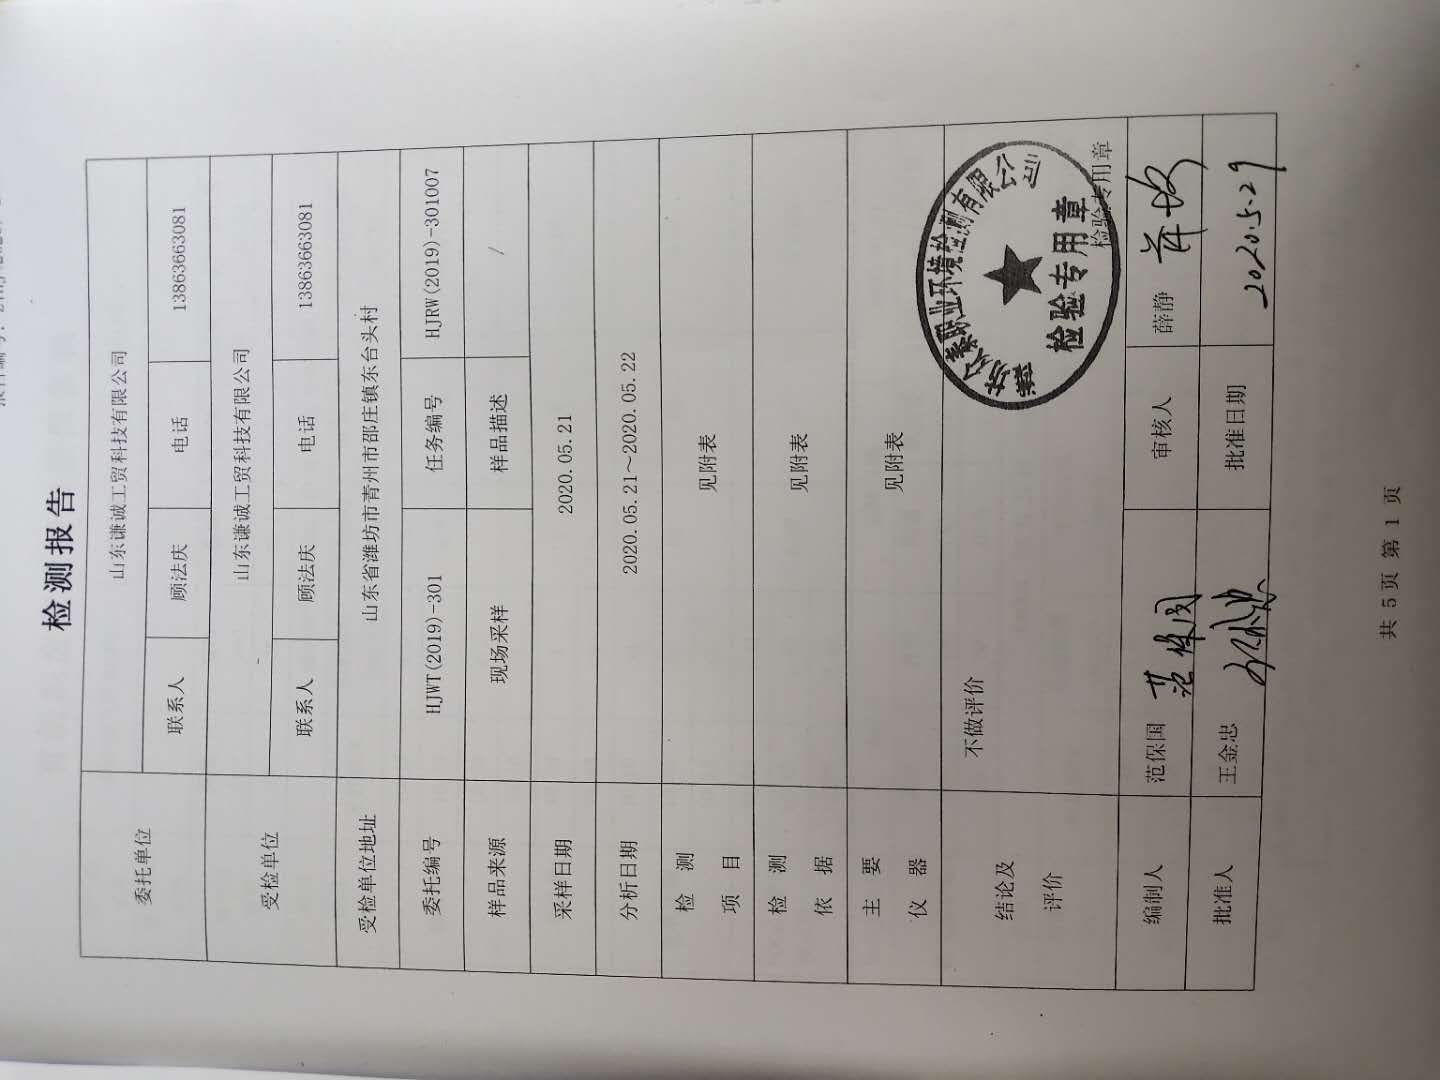 检测报告
委托单位 山东谦诚工贸科技有限公司
联系人 顾法庆 电话 13863663081
受检单位 山东谦诚工贸科技有限公司
联系人 顾法庆 电话 13863663081
受检单位地址 山东省潍坊市青州市邵庄镇东台头村
委托编号 HJWT(2019)-301 任务编号 HJRW(2019)-301007
样品来源 现场采样 样品描述 /
采样日期 2020.05.21
分析日期 2020.05.21～2020.05.22
检测项目 见附表
检测依据 见附表
主要仪器 见附表
结论及评价 不做评价
职业环境检测有限公司
检验专用章
检验专用章
编制人 范保国 范保国 审核人 薛静
批准人 王金忠 批准日期 2020.5.29
共 5 页 第 1 页